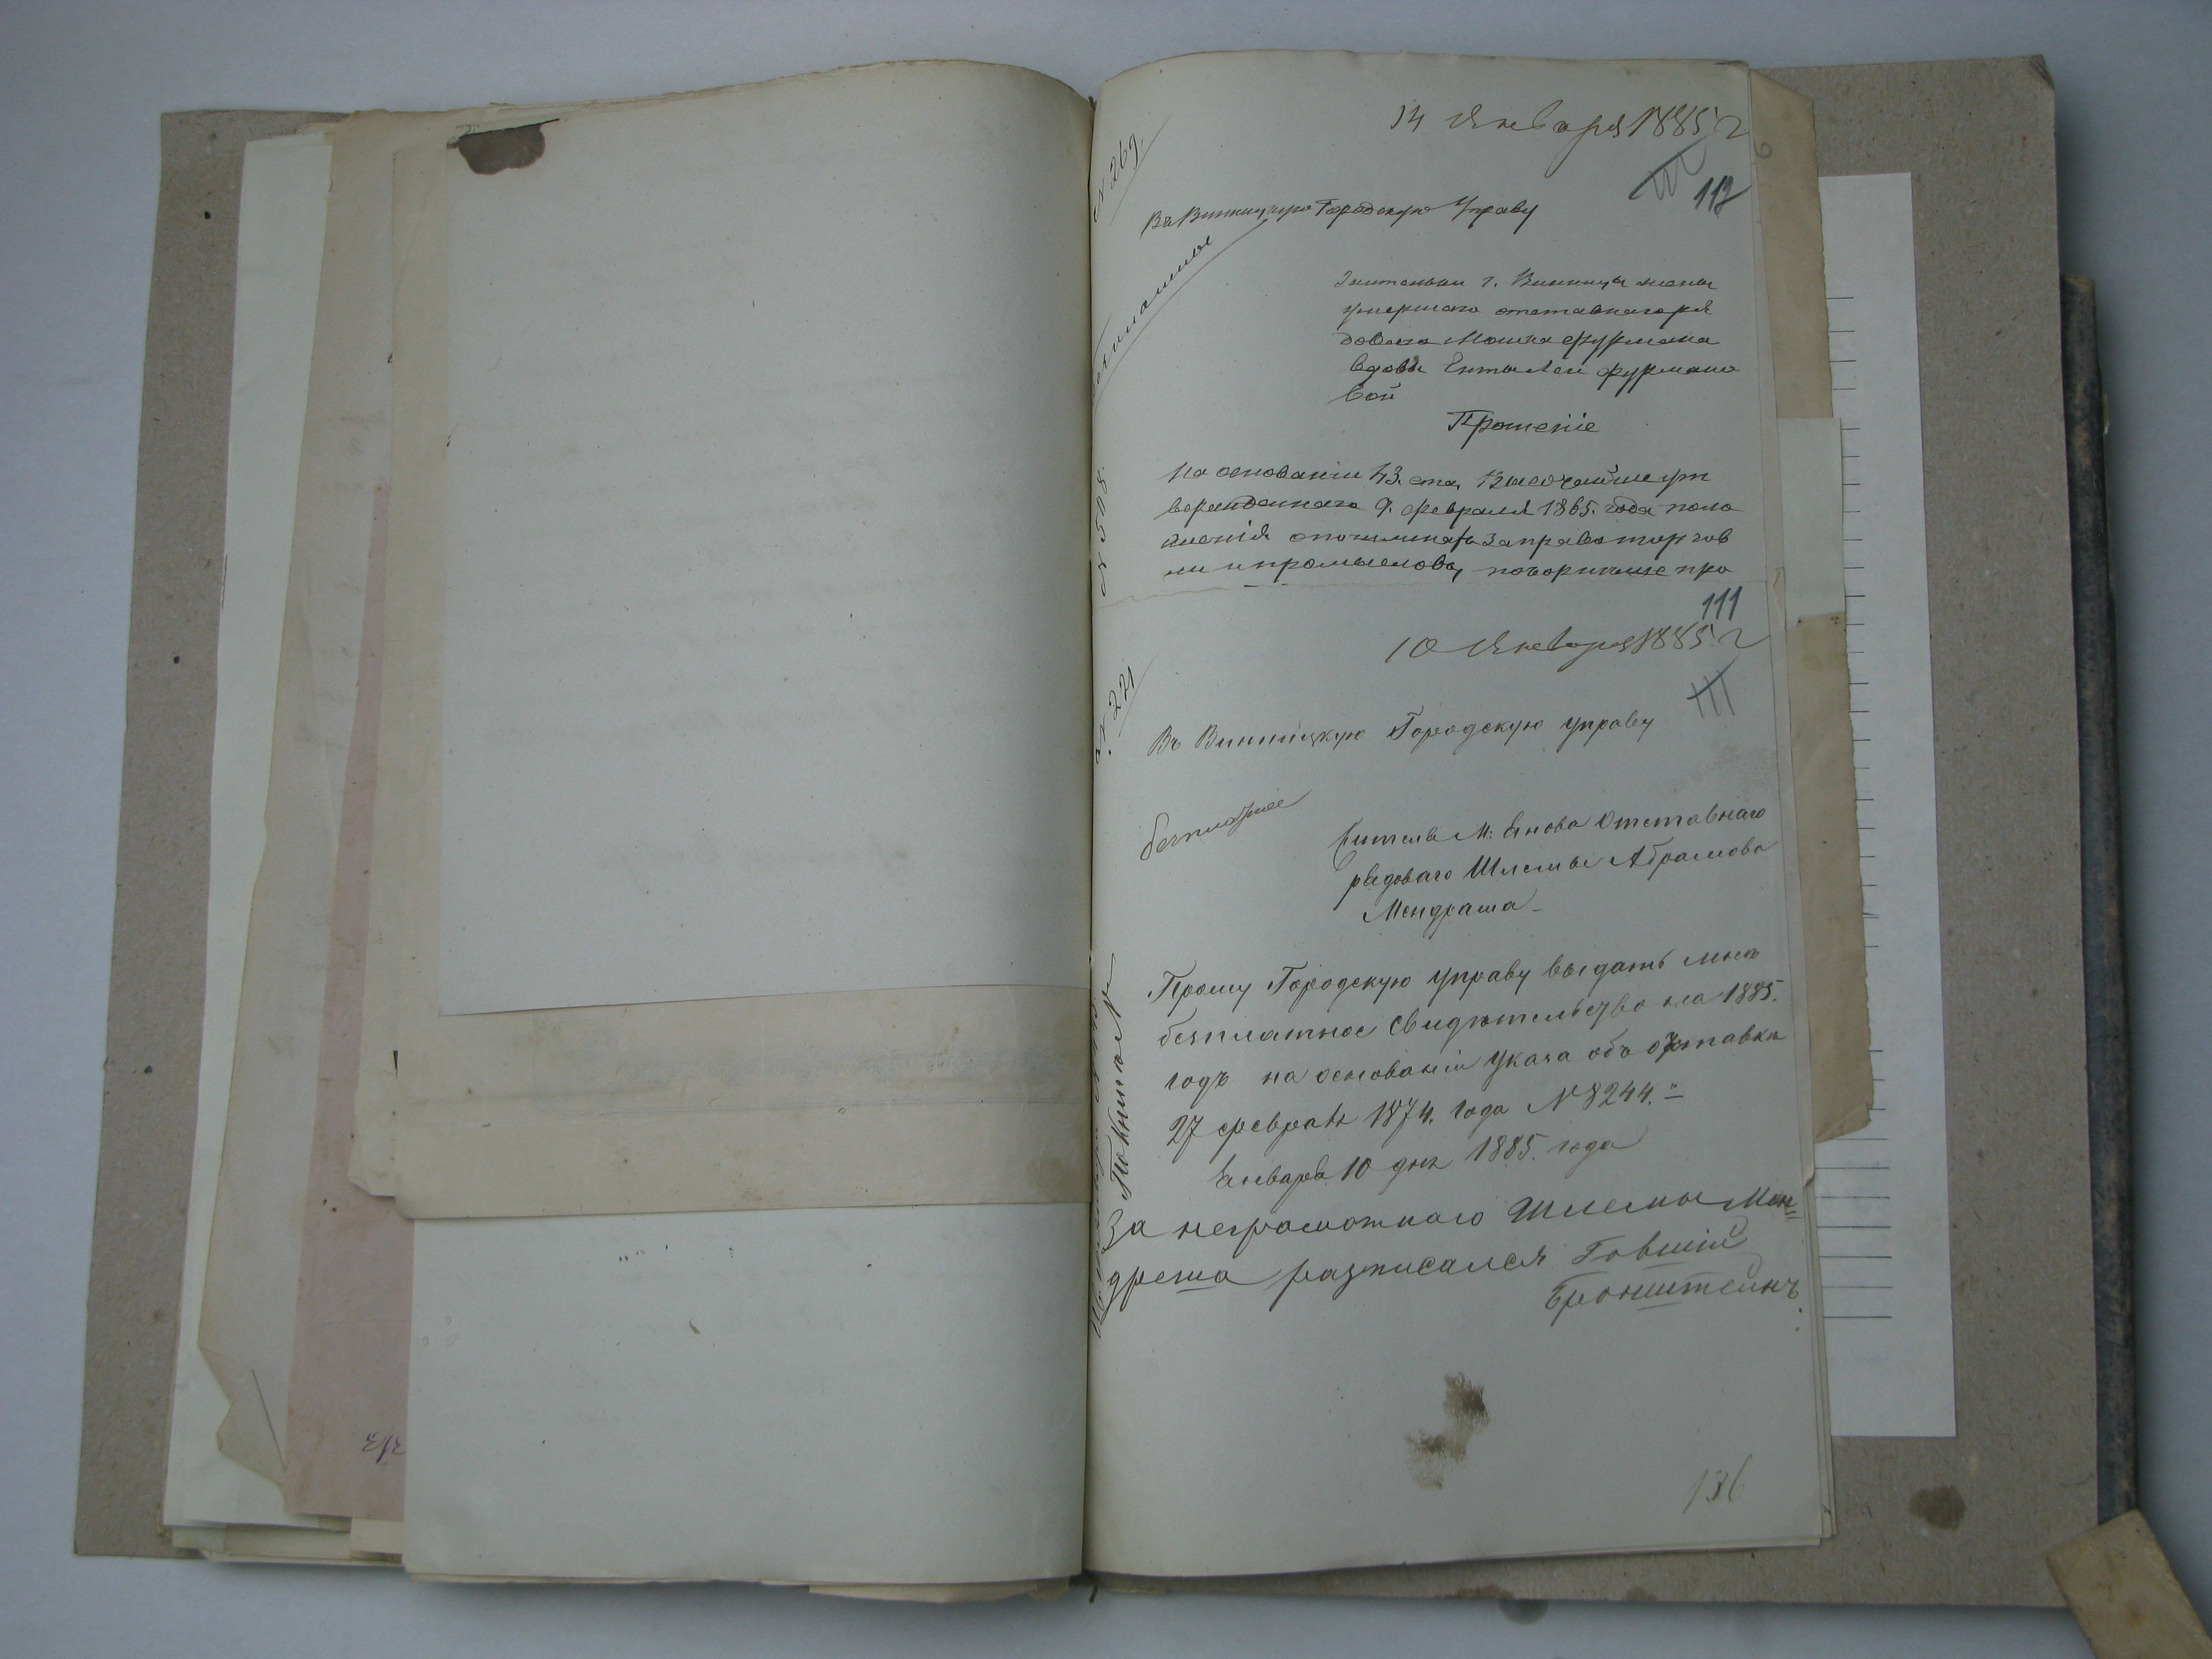 14 Января 1885 г
№ 269.
112
Въ Винницкую Городскую Управу
безплатное
Жительки г. Винницы жены
умершаго отставнаго ря
доваго Мошка Фурмана
вдовы Енты Леи Фурмано
вой
Прошеніе
На основаніи 43. ста, Высочайше ут
вержденнаго 9. февраля 1865. года поло
женія о пошлинахъ за право торгов
ли и промысловъ,
№ 508.
111
10 Января 1885 г
№ 221
111
Въ Винницкую Городскую Управу
безплатное
Жителя М: Янова Отставнаго
рядоваго Шлемы Абрамова
Мендраша
Прошу Городскую Управу выдать мнѣ
безплатное Свидѣтельство на 1885.
годъ на основаніи Указа объ отставки
27 февраля 1874. года № 8244.
Января 10 дня 1885. года
За неграмотнаго Шлемы Мен=
дреша разписался Говшій
Бронштейнъ.
136